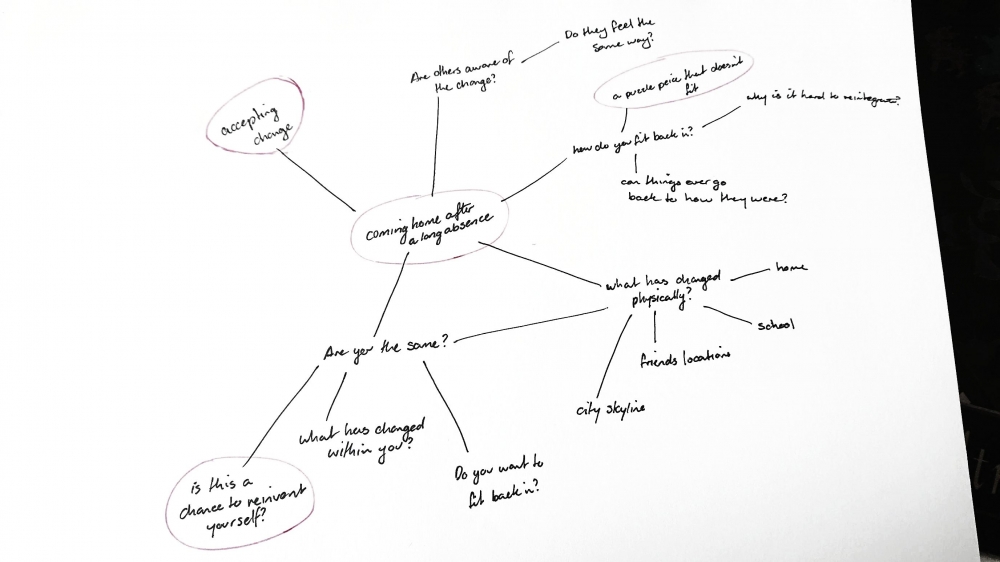 Do they feel the
same way?
Are others aware of
the change?
a puzzle peice that doesn't
fit
why is it hard to reintegrate?
accepting
change
how do you fit back in?
can things ever go
back to how they were?
coming home after
a long absence
what has changed
physically?
home
school
friends locations
city skyline
Are you the same?
what has changed
within you?
Do you want to
fit back in?
is this a
chance to reinvent
yourself?